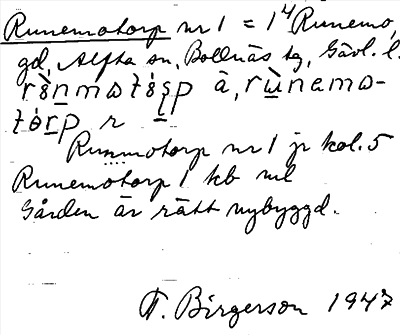 Runemotorp nr 1 = 1⁴ Runemo,
gd, Alfta sn, Bollnäs tg, Gävl. l.
å,
r
Runmotorp nr 1 jr kol. 5
Runemotorp 1 kb ml
Gården är rätt nybyggd.
T. Birgerson 1947